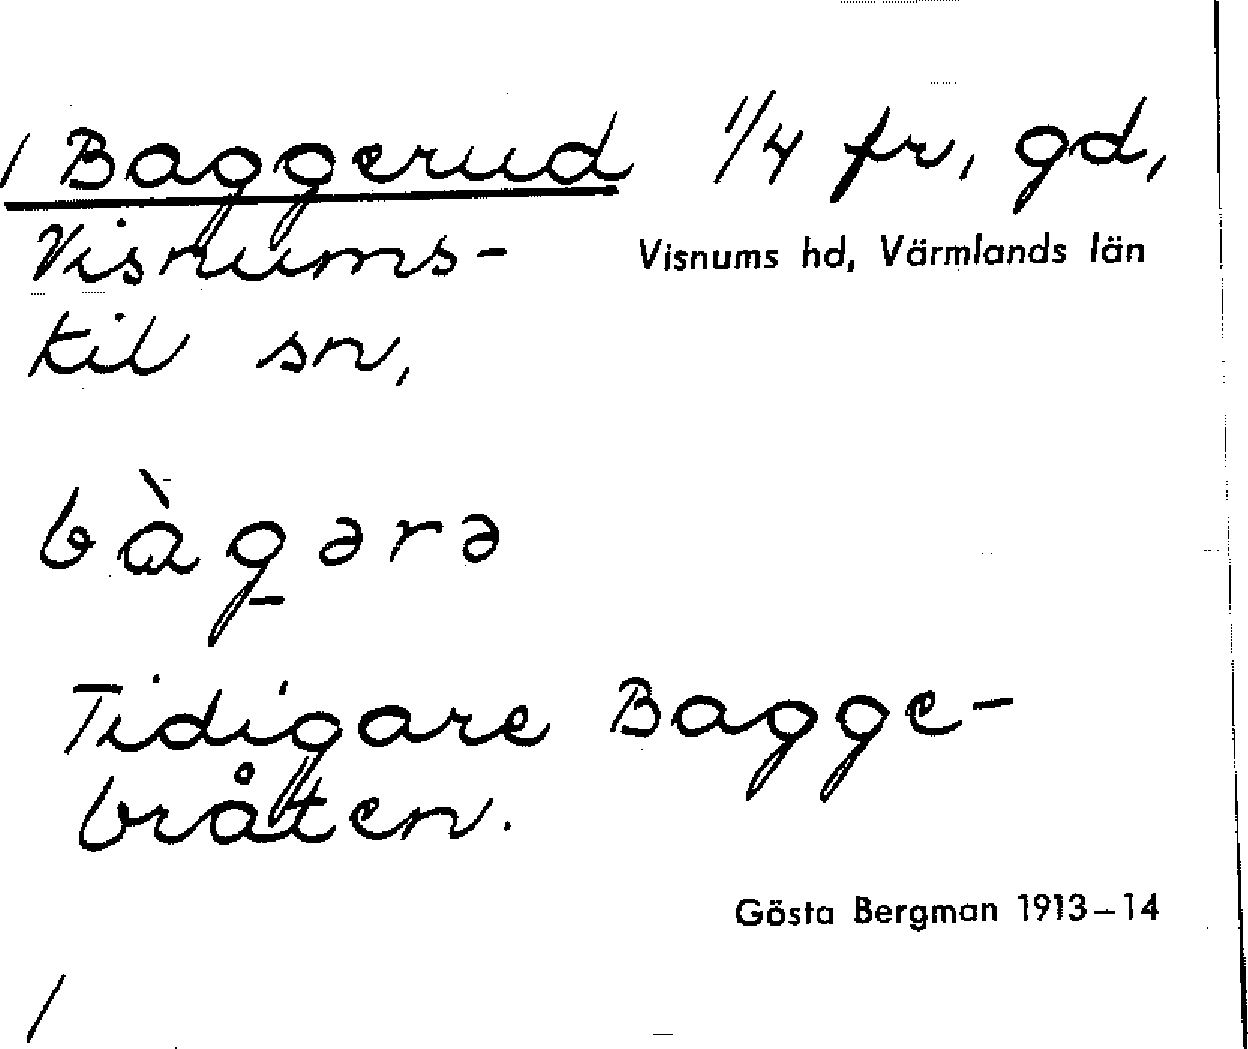 / Baggerud 1/4 fr, gd,
Visnums-
Visnums hd, Värmlands län
kil sn,
bàgərə
Tidigare Bagge-
bråten.
Gösta Bergman 1913–14
/